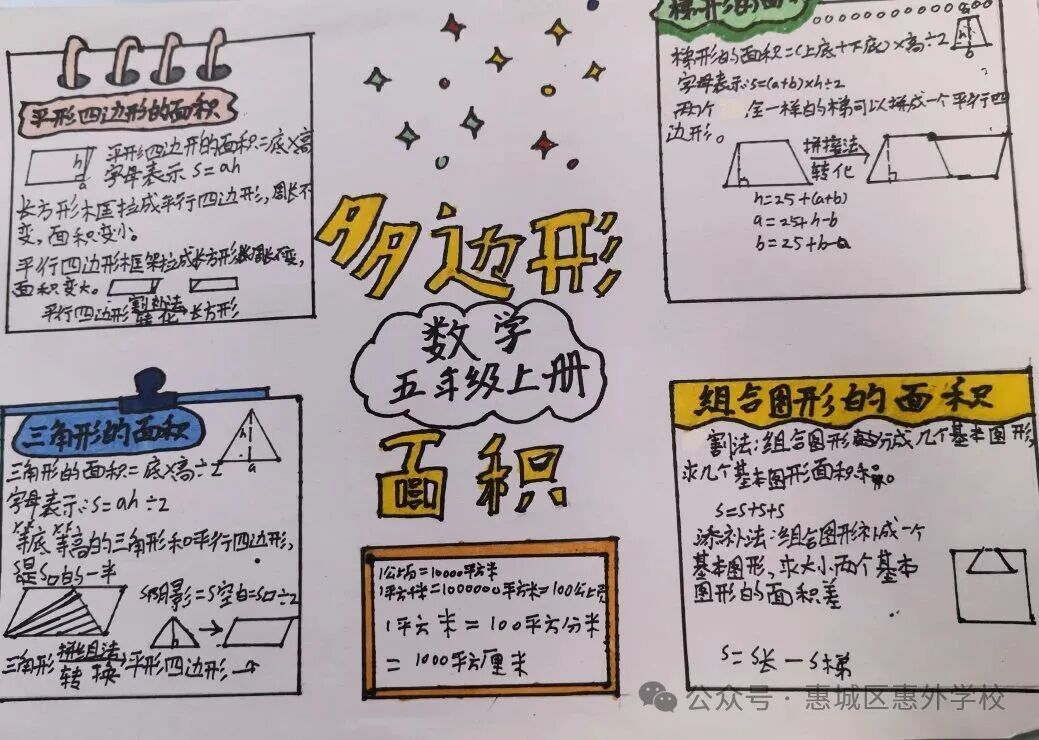 平形四边形的面积
平形四边形的面积=底×高
字母表示 S=ah
h
a
长方形木框拉成平行四边形,周长不
变,面积变小。
平行四边形框架拉成长方形,周长不变,
面积变大。
平行四边形 割补法 长方形
转化
多边形
数学
五年级上册
面积
梯形的面积
梯形的面积=(上底+下底)×高÷2
字母表示:S=(a+b)×h÷2
两个 全一样的梯可以拼成一个平行四
边形。
a
h
b
拼接法
转化
h=2S÷(a+b)
a=2S÷h-b
b=2S÷h-a
三角形的面积
三角形的面积=底×高÷2
h
a
字母表示:S=ah÷2
等底等高的三角形和平行四边形,
S是S□的一半
S阴影=S空白=S□÷2
h
三角形 拼组法 平形四边形
转换
1公顷=10000平方米
1平方千米=1000000平方米=100公顷
1平方米=100平方分米
=1000平方厘米
组合图形的面积
割法:组合图形分成几个基本图形,
求几个基本图形面积和。
S=S+S+S
添补法:组合图形补成一个
基本图形,求大小两个基本
图形的面积差
S=S长-S梯
公众号·惠城区惠外学校